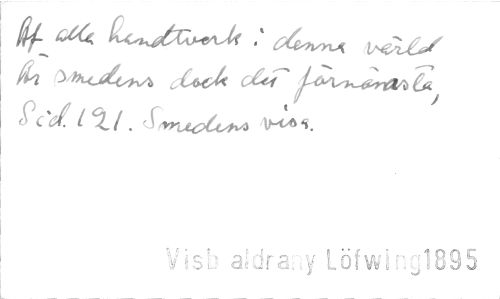 Af alla handtverk i denna värld
Är smedens dock det förnämsta,
Sid. 121. Smedens visa.
Visb aldrany Löfwing1895